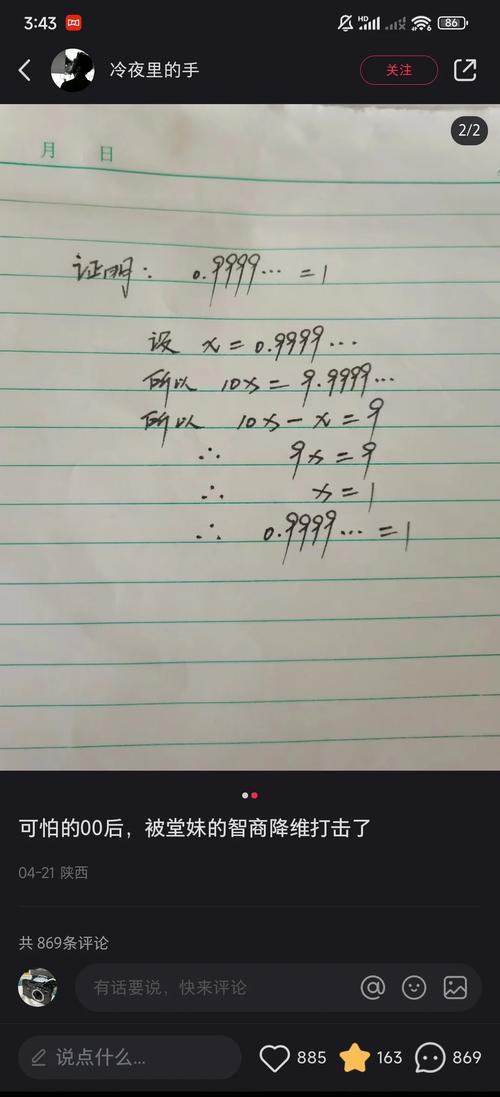 3:43
HD
86
冷夜里的手
关注
2/2
月 日
证明: 0.9999… = 1
设 x = 0.9999…
所以 10x = 9.9999…
所以 10x - x = 9
∴ 9x = 9
∴ x = 1
∴ 0.9999… = 1
可怕的00后，被堂妹的智商降维打击了
04-21 陕西
共 869条评论
有话要说，快来评论
说点什么...
885
163
869